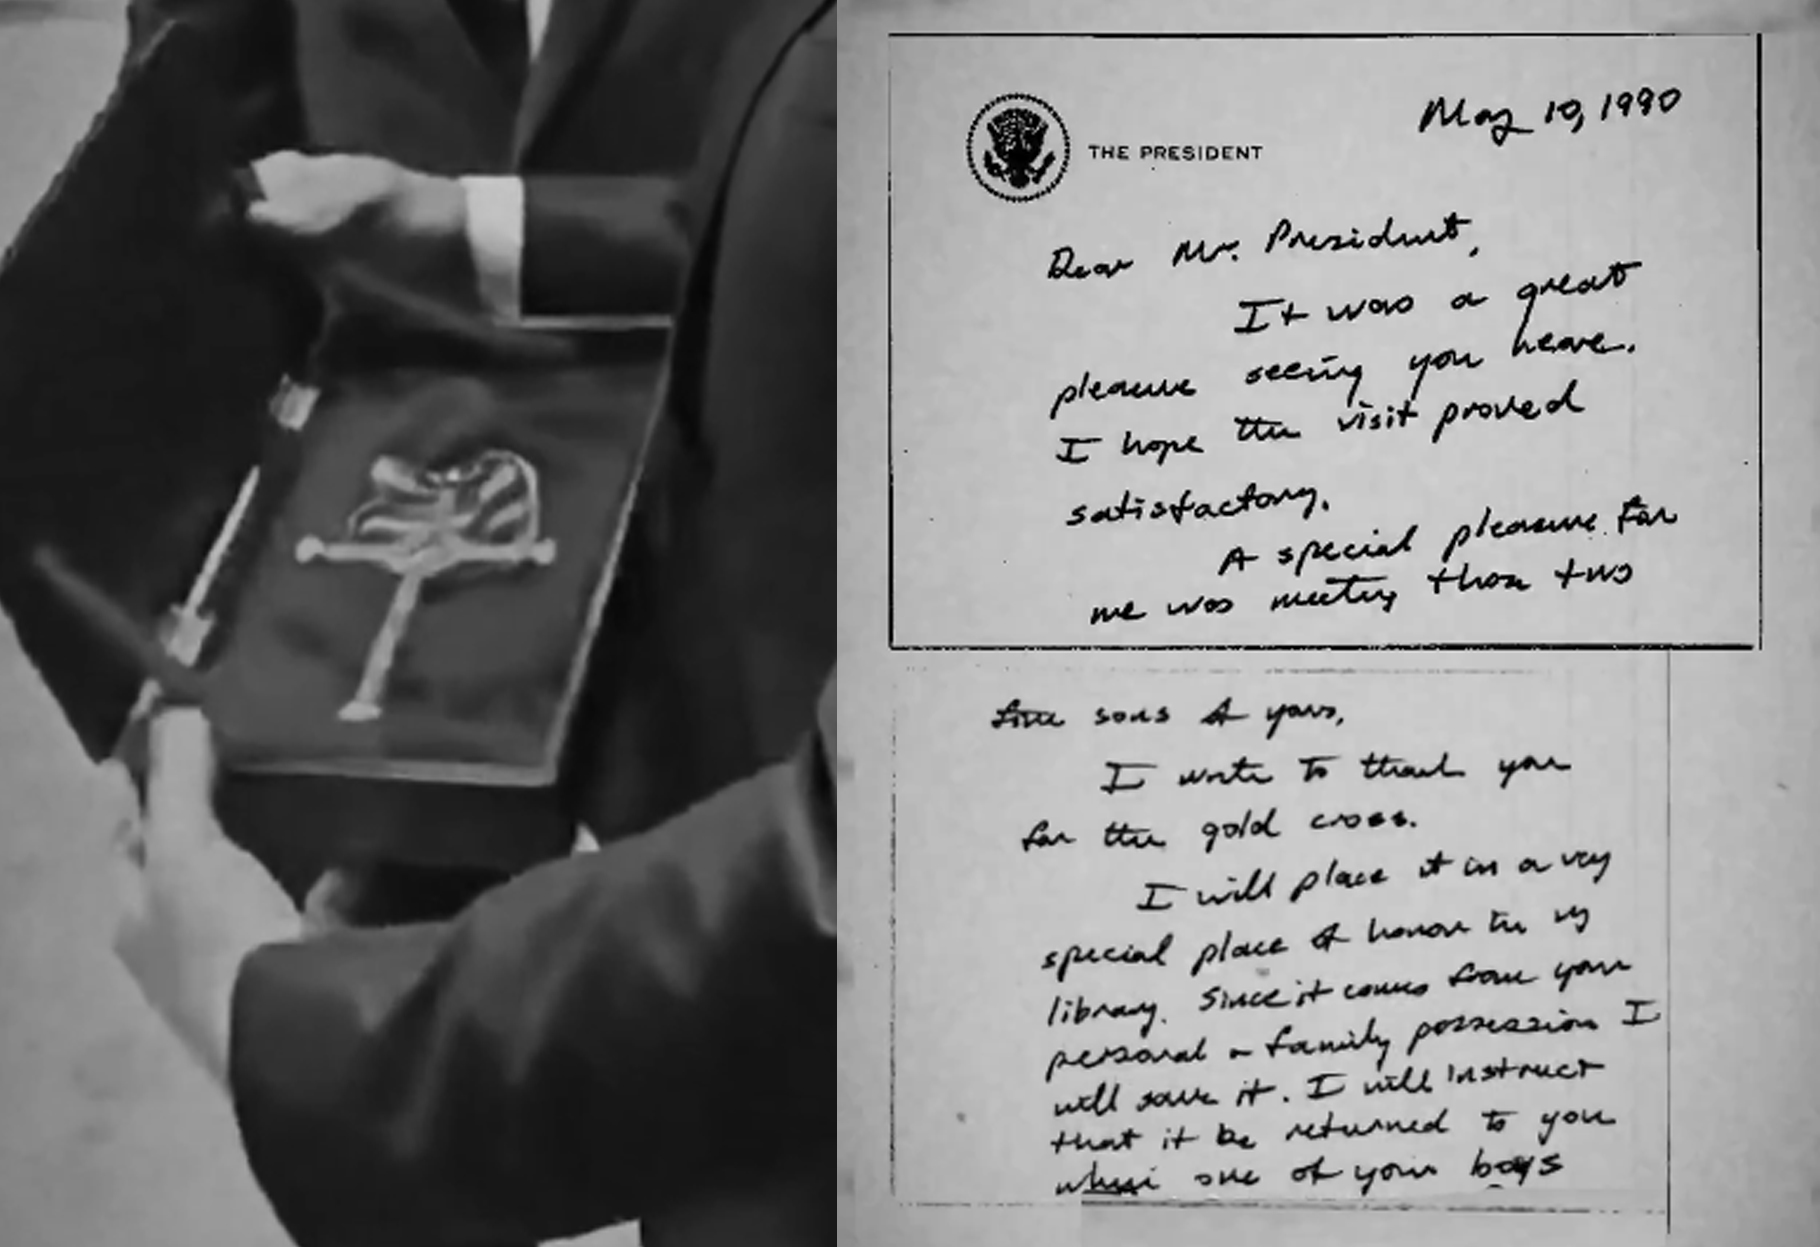 May 10, 1990
THE PRESIDENT
Dear Mr. President,
It was a great
pleasure seeing you here.
I hope the visit proved
satisfactory.
A special pleasure for
me was meeting those two
fine sons of yours.
I write to thank you
for the gold cross.
I will place it in a very
special place of honor in my
library. Since it comes from your
personal or family possession I
will save it. I will instruct
that it be returned to you
when one of your boys